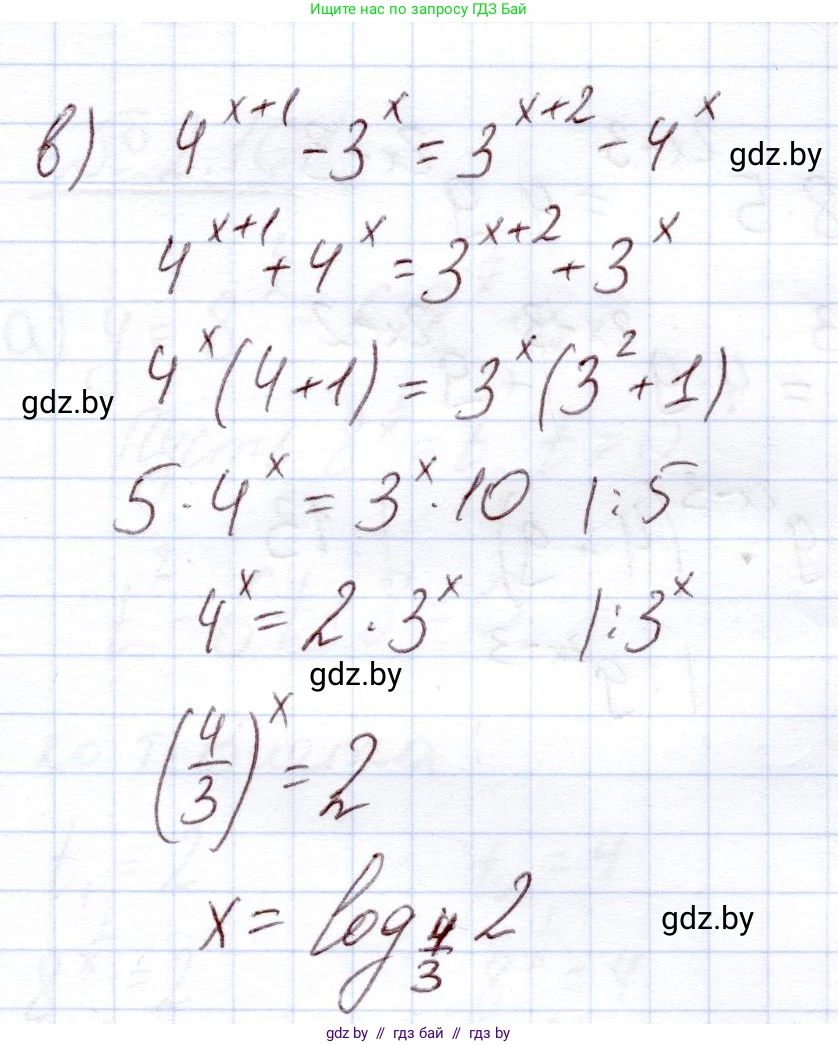 Ищите нас по запросу ГДЗ Бай
в) 4^(x+1) - 3^x = 3^(x+2) - 4^x
gdz.by
4^(x+1) + 4^x = 3^(x+2) + 3^x
4^x (4+1) = 3^x (3^2 + 1)
gdz.by
5 · 4^x = 3^x · 10 | : 5
4^x = 2 · 3^x | : 3^x
gdz.by
(4/3)^x = 2
x = log_(4/3) 2
gdz.by
gdz.by // гдз бай // gdz.by